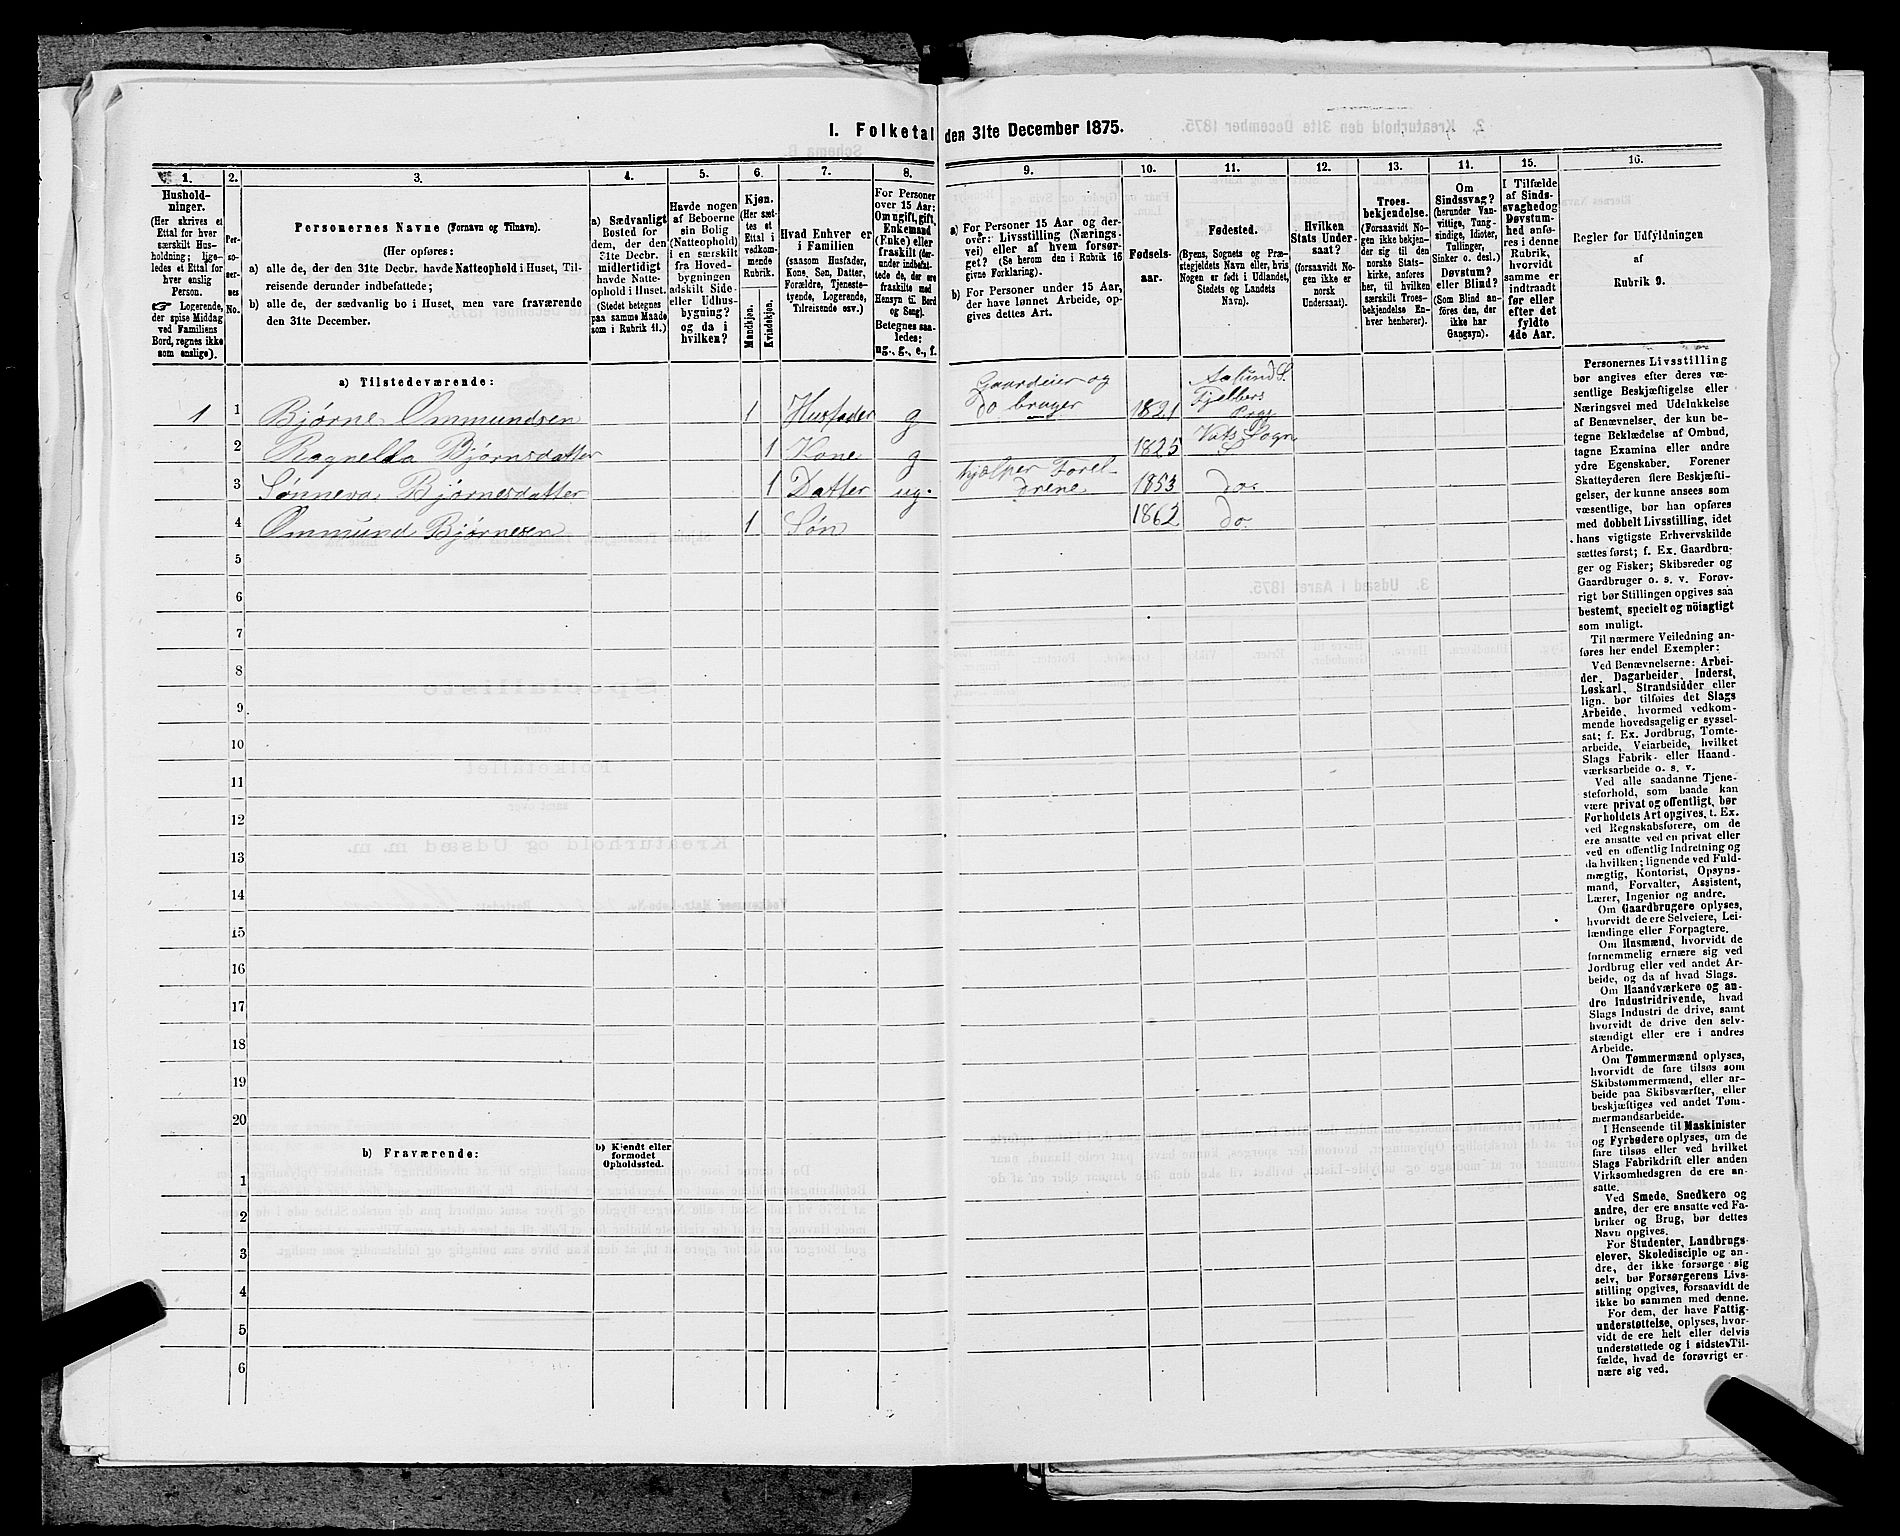 I. Folketal den 31te December 1875.
1.
Hushold-
ninger.
(Her skrives et
Ettal for hver
særskilt Hus-
holdning; lige-
ledes et Ettal for
hver enslig
Person.
☞ Logerende,
der spise Middag
ved Familiens
Bord, regnes ikke
som enslige).
2.
Per-
so-
ner-
nes
No.
3.
Personernes Navne (Fornavn og Tilnavn).
(Her opføres:
a) alle de, der den 31te Decbr. havde Natteophold i Huset, Til-
reisende derunder indbefattede;
b) alle de, der sædvanlig bo i Huset, men vare fraværende
den 31te December.
4.
a) Sædvanligt
Bosted for
dem, der den
31te Decbr.
midlertidigt
havde Natte-
ophold i Huset.
(Stedet betegnes
paa samme Maade
som i Rubrik 11.)
5.
Havde nogen
af Beboerne
sin Bolig
(Natteophold)
i en særskilt
fra Hoved-
bygningen
adskilt Side-
eller Udhus-
bygning?
og da i
hvilken?
6.
Kjøn.
(Her sæt-
tes et
Ettal i
vedkom-
mende
Rubrik.
Mandkjøn.
Kvindekjøn.
7.
Hvad Enhver er
i Familien
(saasom Husfader,
Kone, Søn, Datter,
Forældre, Tjeneste-
tyende, Logerende,
Tilreisende osv.)
8.
For Personer
over 15 Aar:
Om ugift, gift,
Enkemand
(Enke) eller
fraskilt (der-
under indbefat-
tede de, der ere
fraskilte med
Hensyn til Bord
og Seng).
Betegnes saa-
ledes:
ug., g., e., f.
9.
a) For Personer 15 Aar og der-
over: Livsstilling (Nærings-
vei) eller af hvem forsør-
get? (Se herom den i Rubrik 16
givne Forklaring).
b) For Personer under 15 Aar,
der have lønnet Arbeide, op-
gives dettes Art.
10.
Fødsels-
aar.
11.
Fødested.
(Byens, Sognets og Præ-
stegjeldets Navn eller, hvis
Nogen er født i Udlandet,
Stedets og Landets
Navn).
12.
Hvilken
Stats Under-
saat?
(forsaavidt No-
gen ikke er
norsk
Undersaat).
13.
Troes-
bekjendelse.
(Forsaavidt No-
gen ikke bekjen-
der sig til den
norske Stats-
kirke, anføres
her, til hvilken
særskilt Troes-
bekjendelse En-
hver henhører).
14.
Om
Sindssvag?
(herunder Van-
vittige, Tung-
sindige, Idioter,
Tullinger,
Sinker o. desl.)
Døvstum?
eller Blind?
(Som Blind an-
føres den, der
ikke har
Gangsyn).
15.
I Tilfælde
af Sinds-
svaghed og
Døvstum-
hed anfø-
res i denne
Rubrik,
hvorvidt
samme er
indtraadt
før eller
efter det
fyldte
4de Aar.
16.
Regler for Udfyldningen
af
Rubrik 9.
a) Tilstedeværende:
1 1 Bjørne Ommundsen 1 Husfader g Gaardeier og do bruger 1821 Aalund S. Fjelbergs Prgj
2 Ragnelda Bjørnsdatter 1 Kone g 1825 Vats Sogn
3 Sønneva Bjørnesdatter 1 Datter ug. hjælper Foreldrene 1853 do.
4 Ommund Bjørnesen 1 Søn 1862 do.
5
6
7
8
9
10
11
12
13
14
15
16
17
18
19
20
b) Fraværende:
b) Kjendt eller
formodet
Opholdssted.
1
2
3
4
5
6
Personernes Livsstilling
bør angives efter deres væ-
sentlige Beskjæftigelse eller
Næringsvei med Udelukkelse
af Benævnelser, der kun be-
tegne Beklædelse af Ombud,
tagne Examina eller andre
ydre Egenskaber. Forener
Skatteyderen flere Beskjæfti-
gelser, der kunne ansees som
væsentlige, bør han opføres
med dobbelt Livsstilling, idet
hans vigtigste Erhvervskilde
sættes først; f. Ex. Gaardbru-
ger og Fisker; Skibsreder og
Gaardbruger o. s. v. Forøv-
rigt bør Stillingen opgives saa
bestemt, specielt og nöiagtigt
som muligt.
Til nærmere Veiledning an-
føres her endel Exempler:
Ved Benævnelserne: Arbei-
der, Dagarbeider, Inderst,
Løskarl, Strandsidder eller
lign. bør tilføies det Slags
Arbeide, hvormed vedkom-
mende hovedsagelig er syssel-
sat; f. Ex. Jordbrug, Tomte-
arbeide, Veiarbeide, hvilket
Slags Fabrik- eller Haand-
værksarbeide o. s. v.
Ved alle saadanne Tjene-
steforhold, som baade kan
være privat og offentligt, bør
Forholdets Art opgives, t. Ex.
ved Regnskabsførere, om de
ere ansatte ved en privat eller
ved en offentlig Indretning og
da hvilken; lignende ved Fuld-
mægtig, Kontorist, Opsyns-
mand, Forvalter, Assistent,
Lærer, Ingeniør og andre.
Om Gaardbrugere oplyses,
hvorvidt de ere Selveiere, Lei-
lændinge eller Forpagtere.
Om Husmænd, hvorvidt de
fornemmelig ernære sig ved
Jordbrug eller ved andet Ar-
beide, og da af hvad Slags.
Om Haandværkere og an-
dre Industridrivende, hvad
Slags Industri de drive, samt
hvorvidt de drive den selv-
stændigt eller ere i andres
Arbeide.
Om Tømmermænd oplyses,
hvorvidt de fare tilsøs som
Skibstømmermænd, eller ar-
beide paa Skibsværfter, eller
beskjæftiges ved andet Tøm-
mermandsarbeide.
I Henseende til Maskinister
og Fyrbødere oplyses, om de
fare tilsøs eller ved hvilket
Slags Fabrikdrift eller anden
Virksomhedsgren de ere an-
satte.
Ved Smede, Snedkere og
andre, der ere ansatte ved Fa-
briker og Brug, bør dettes
Navn opgives.
For Studenter, Landbrugs-
elever, Skoledisciple og an-
dre, der ikke forsørge sig
selv, bør Forsørgerens Livs-
stilling opgives, forsaavidt de
ikke bo sammen med denne.
For dem, der have Fattig-
understøttelse, oplyses, hvor-
vidt de ere helt eller delvis
understøttede og i sidste Til-
fælde, hvad de forøvrigt er-
nære sig ved.